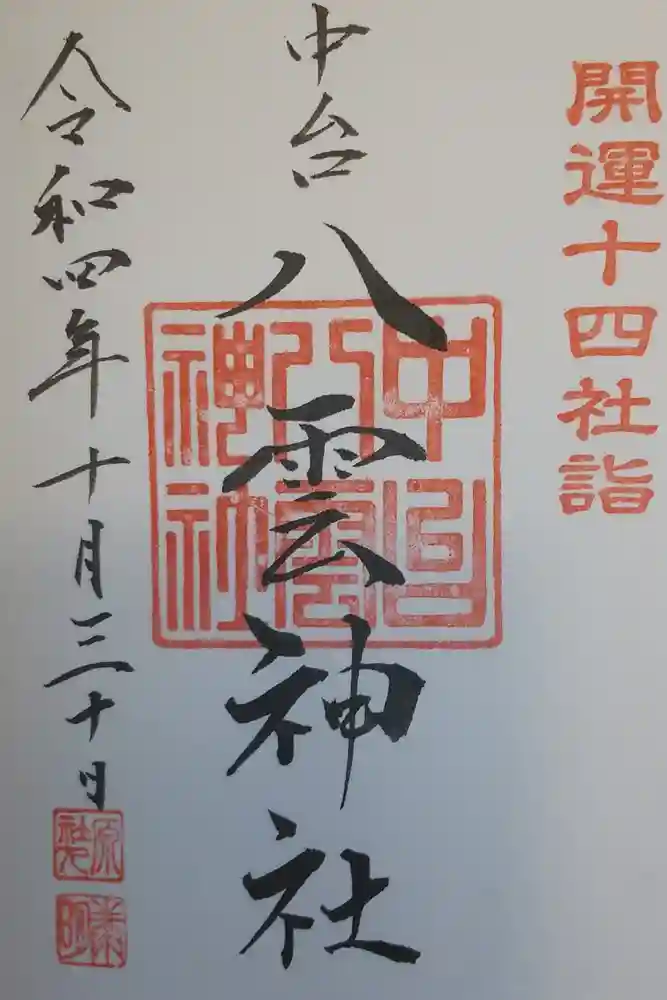 開運十四社詣
中台八雲神社
中台
八雲
神社
令和四年十月三十日